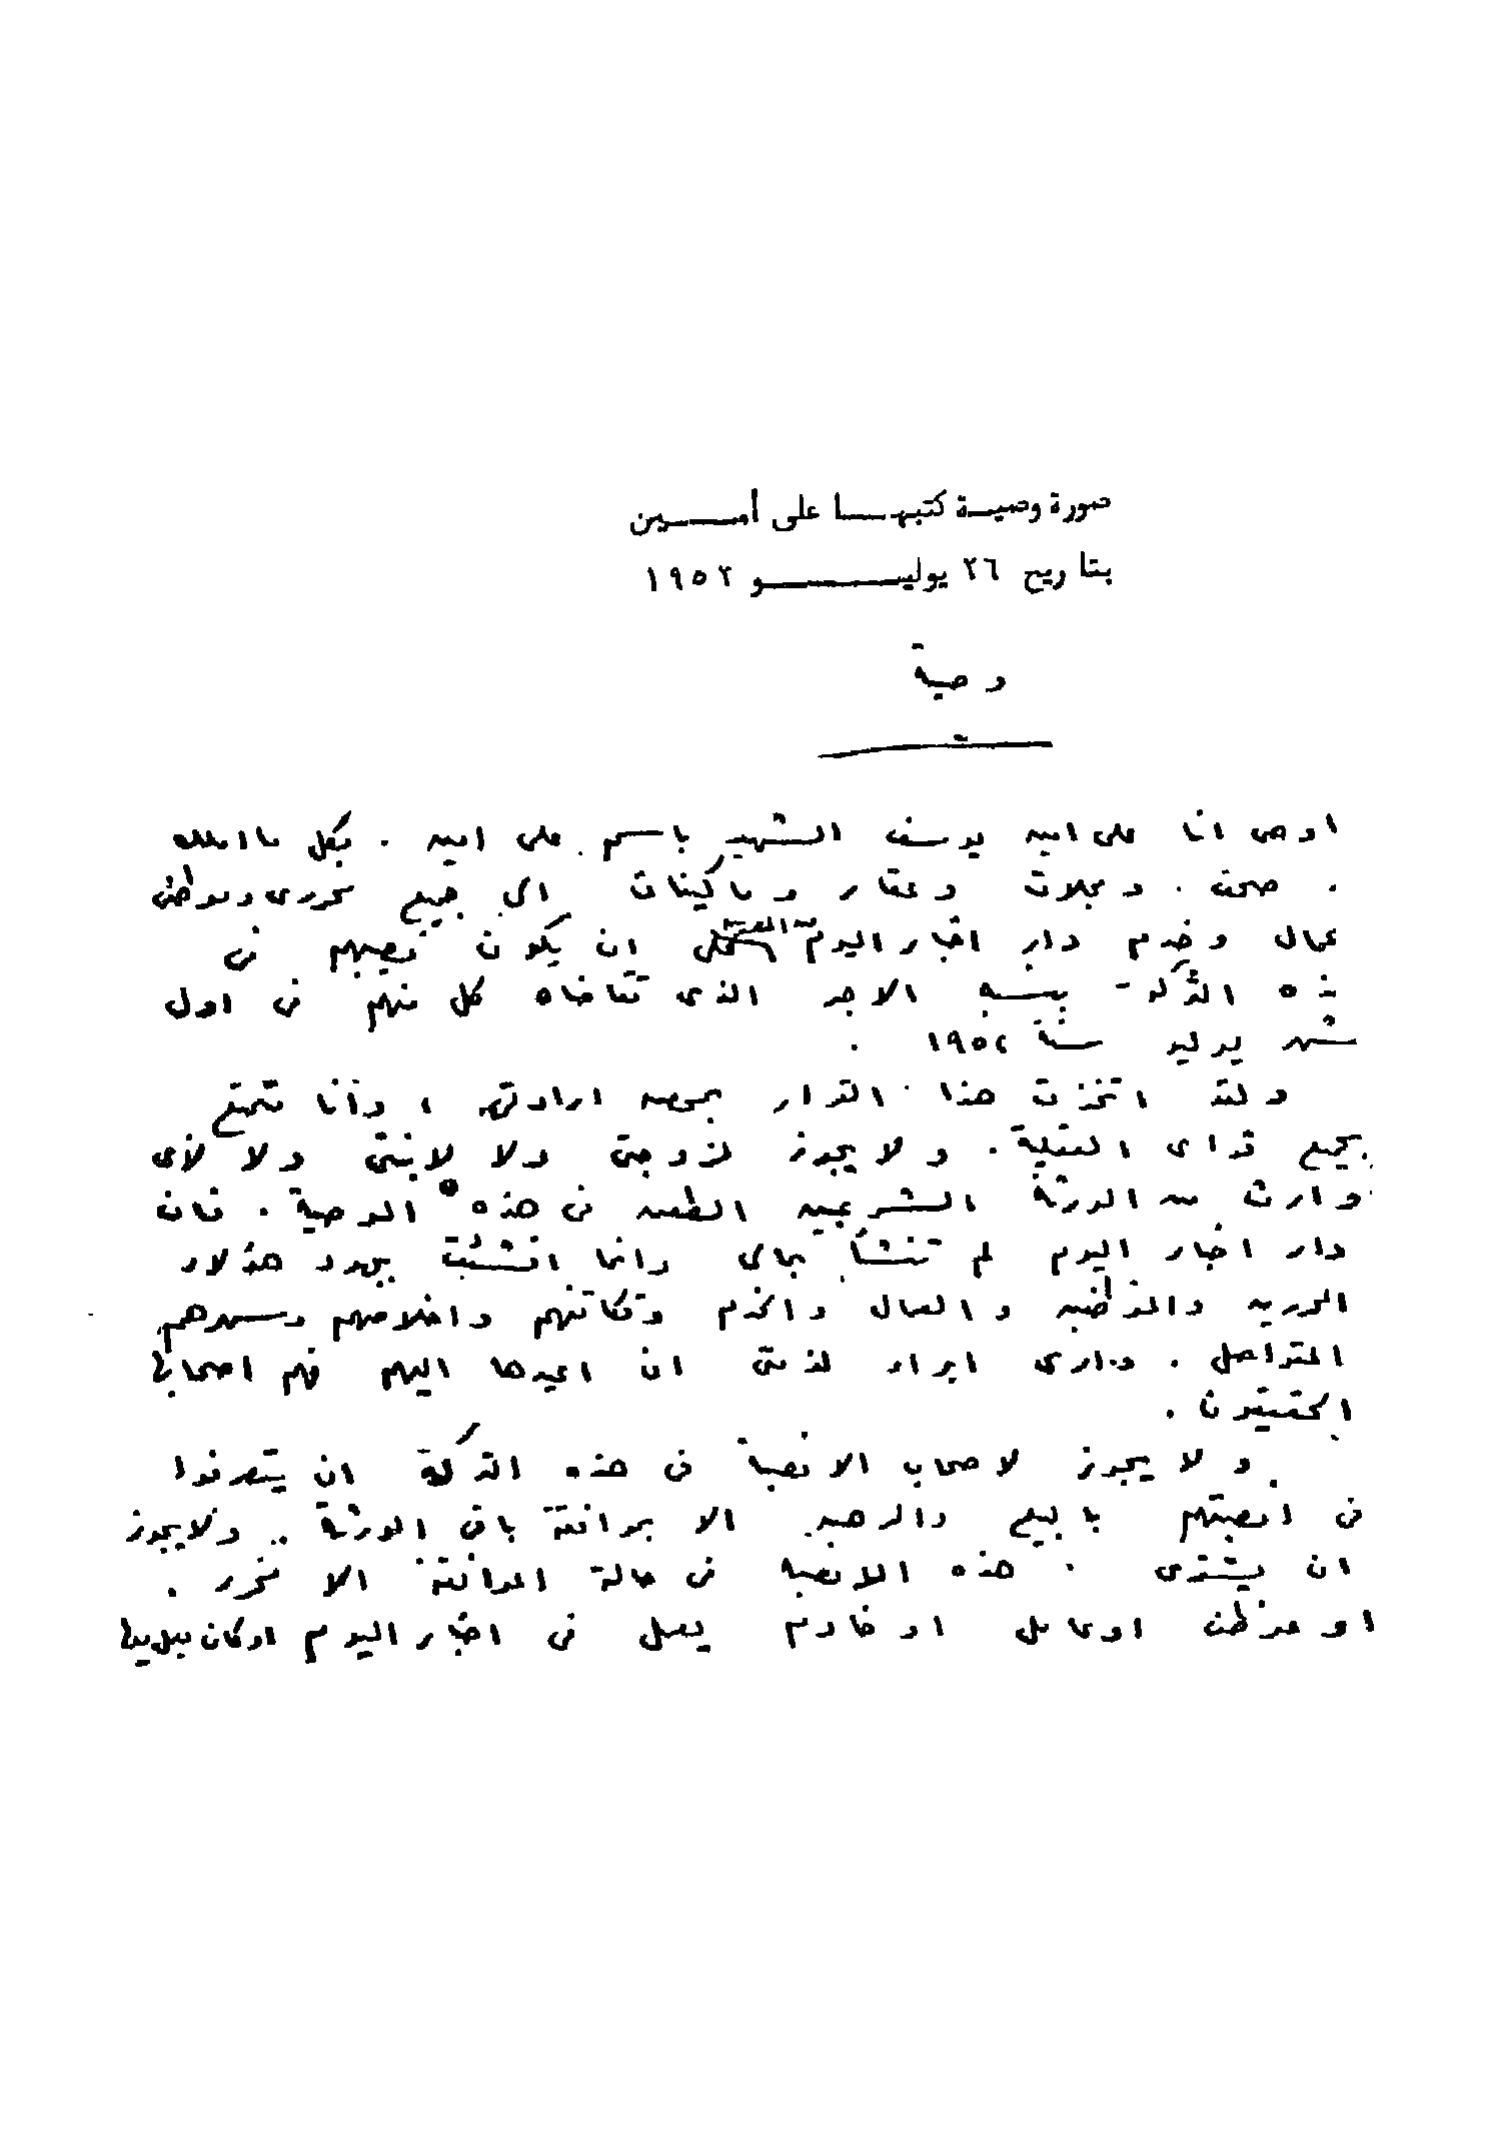 صورة وصية كتبها على أمين
بتاريخ ٢٦ يوليو ١٩٥٢
وصية
اوصى انا على امين يوسف الشهير باسم على امين . بكل ما املك
. صحف . ومجلات وعقار وماكينات الى جميع محررى وموظفى
عمال وخدم دار اخبار اليوم على ان يكون نصيبهم فى
ذه التركة بنسبة الاجر الذى تقاضاه كل منهم فى اول
شهر يوليو سنة ١٩٥٢ .
ولقد اتخذت هذا القرار بمحض ارادتى ، وأنا متمتع
بجميع قواى العقلية . ولا يجوز لزوجتى ولا لابنتى ولا لأى
وارث من الورثة الشرعيين الطعن فى هذه الوصية . فان
دار اخبار اليوم لم تنشأ بمالى وانما انشئت بجهود هؤلاء
المحررين والموظفين والعمال والخدم وتكاتفهم واخلاصهم وسهرهم
المتواصل . وارى ابراء لذمتى ان اعيدها اليهم فهم اصحابها
الحقيقيون .
ولا يجوز لاصحاب الانصبة فى هذه التركة ان يتصرفوا
فى انصبتهم بالبيع والرهن الا بموافقة باقى الورثة .. ولا يجوز
ان يشترى . هذه الانصبة فى حالة الموافقة الا محرر .
او موظف او عامل او خادم يعمل فى اخبار اليوم او كان